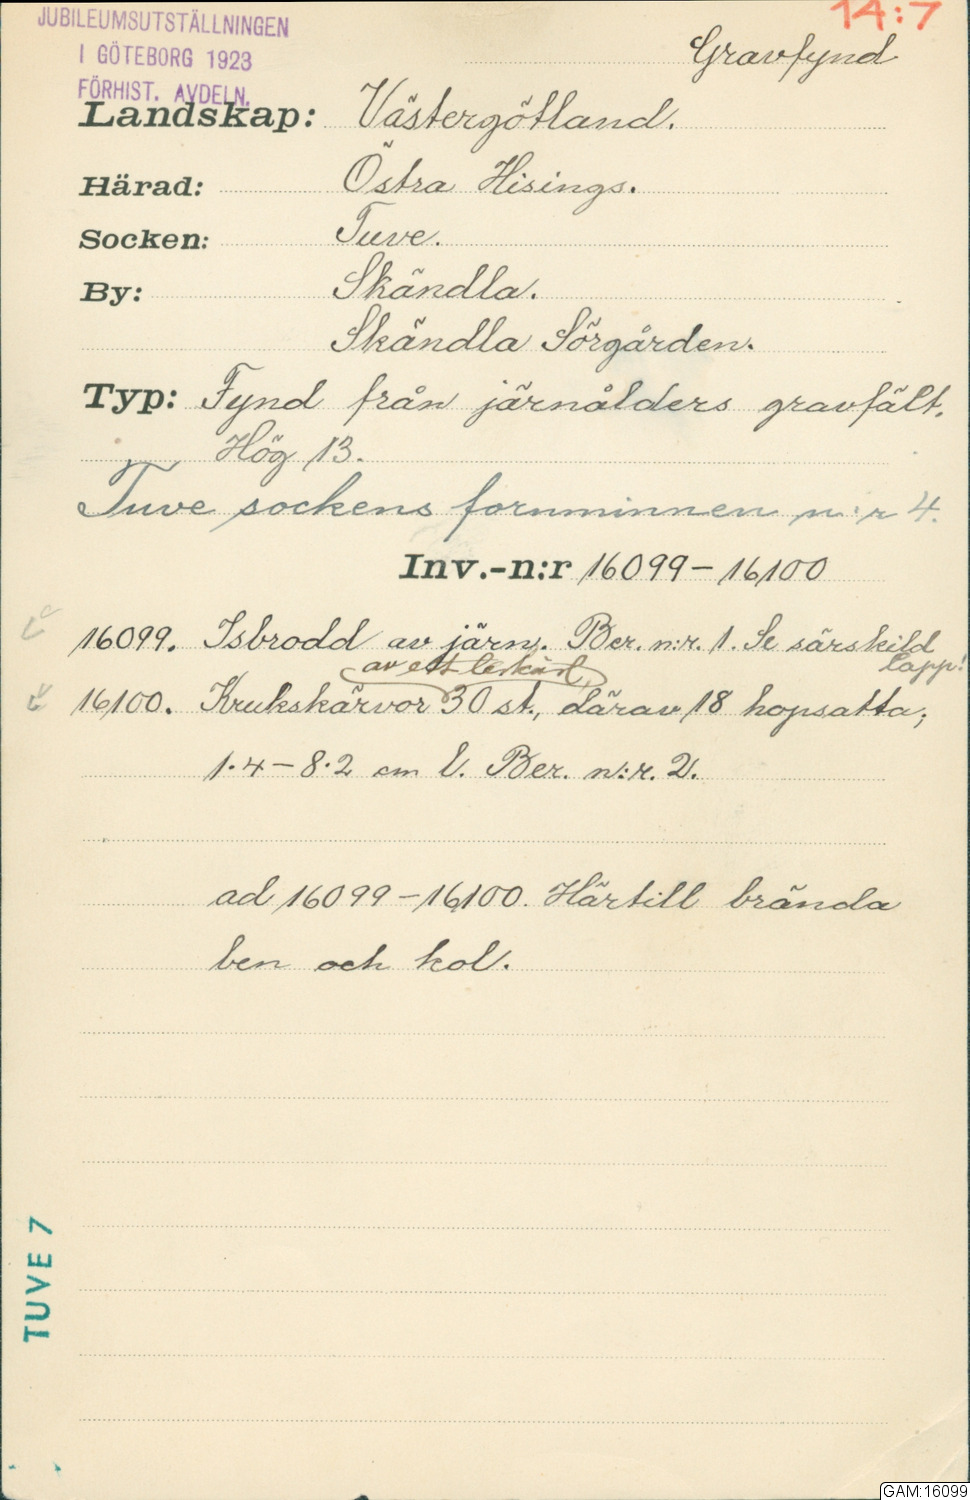 JUBILEUMSUTSTÄLLNINGEN
I GÖTEBORG 1923
FÖRHIST. AVDELN.
14:7
Gravfynd
Landskap: Västergötland.
Härad: Östra Hisings.
Socken: Tuve.
By: Skändla.
Skändla Sörgården.
Typ: Fynd från järnålders gravfält.
Hög 13.
Tuve sockens fornminnen n:r 4.
Inv.-n:r 16099-16100
16099. Isbrodd av järn. Ber. n:r. 1. Se särskild
lapp!
av ett lerkärl,
16100. Krukskärvor 30 st., därav 18 hopsatta;
1.4-8.2 cm l. Ber. n:r. 2.
ad 16099-16100. Härtill brända
ben och kol.
TUVE 7
GAM:16099